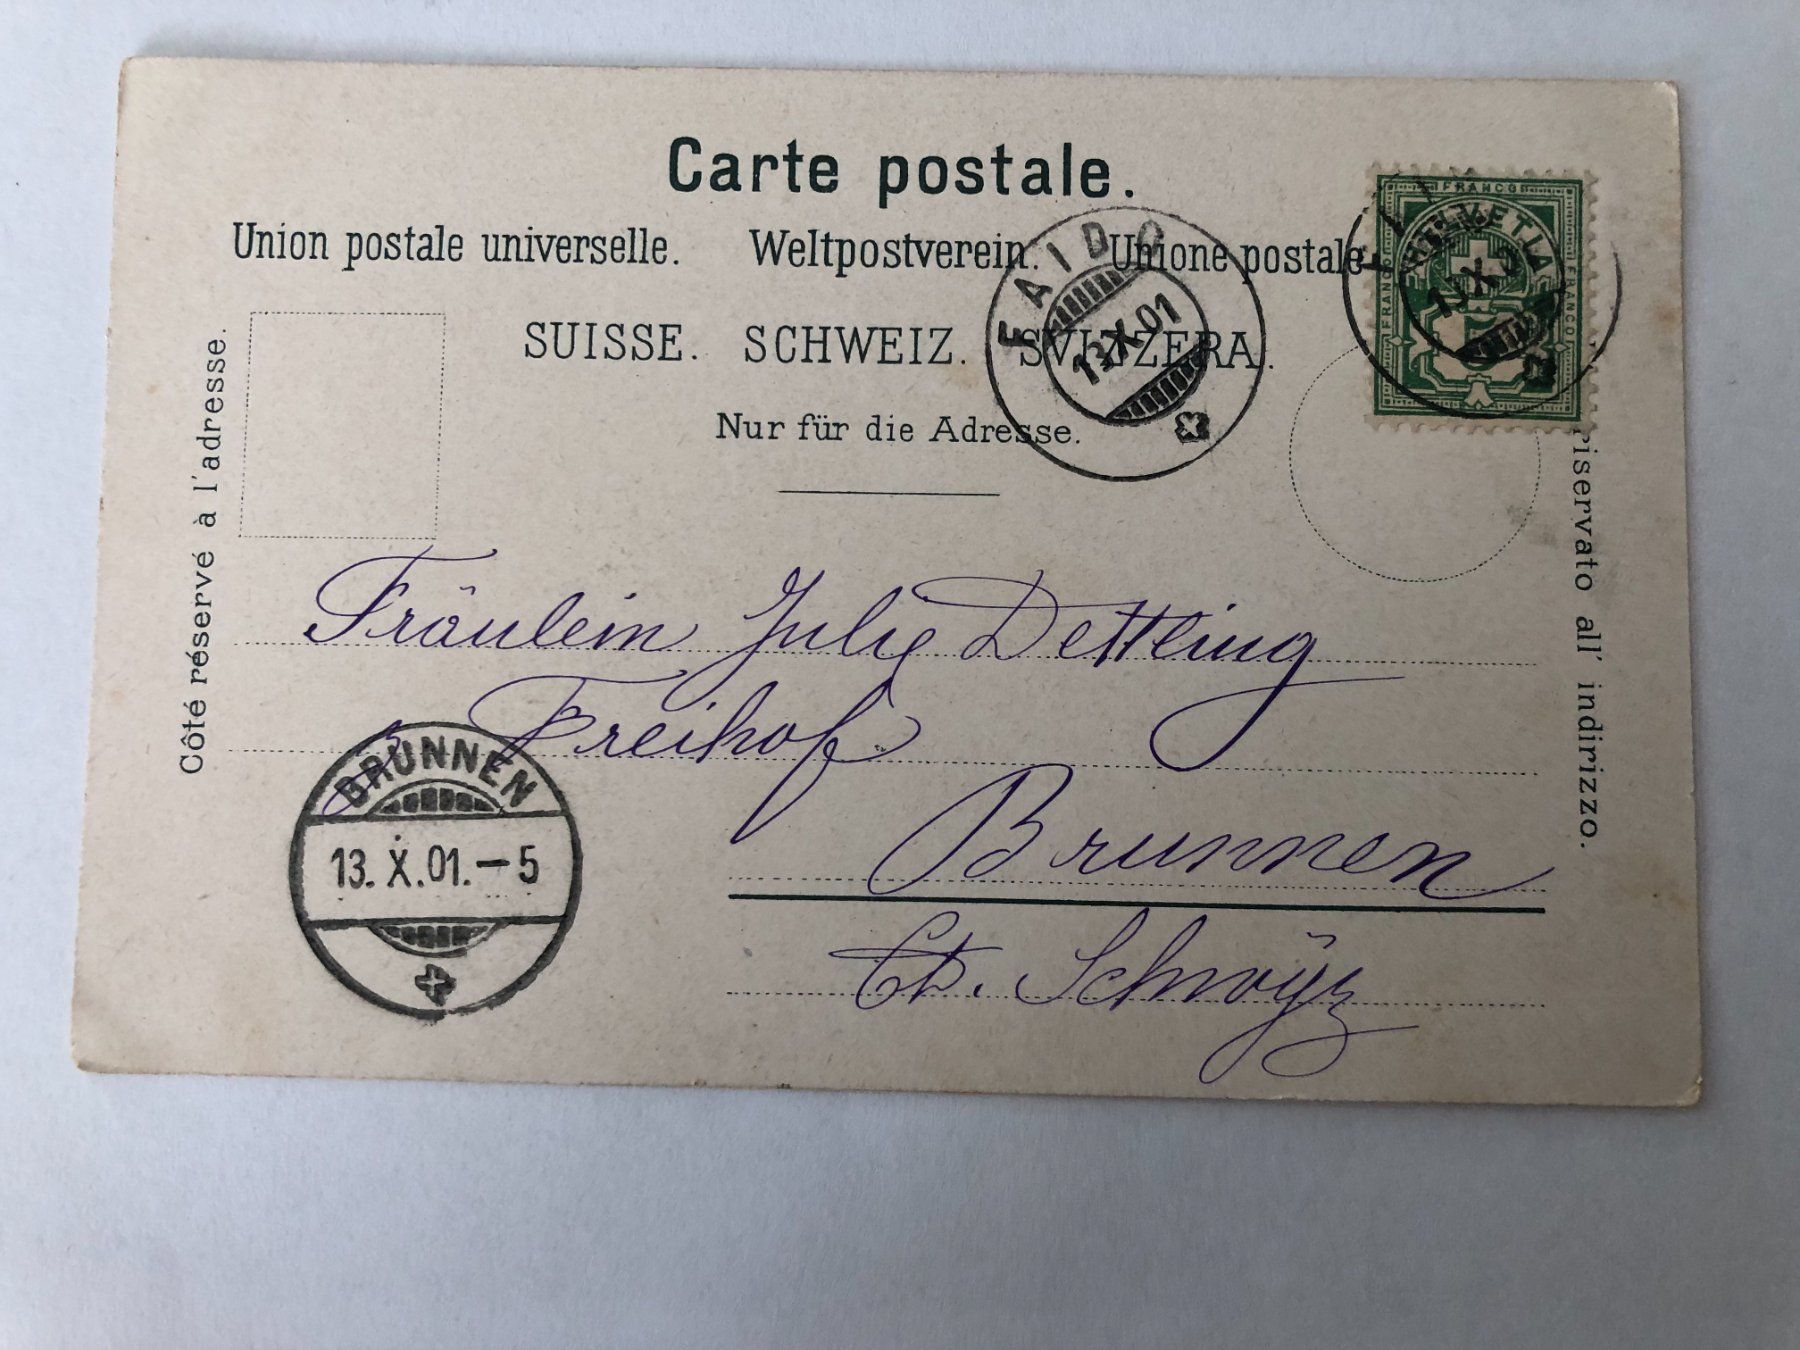 Carte postale.
Union postale universelle. Weltpostverein. Unione postale
SUISSE. SCHWEIZ. SVIZZERA.
Nur für die Adresse.
Côté réservé à l'adresse.
riservato all' indirizzo.
FRANCO
FRANCO
FRANCO
HELVETIA
5
FAIDO
13.X.01
Fräulein Julie Dettling
z. Freihof
Brunnen
Ct. Schwÿz
BRUNNEN
13. X. 01. – 5